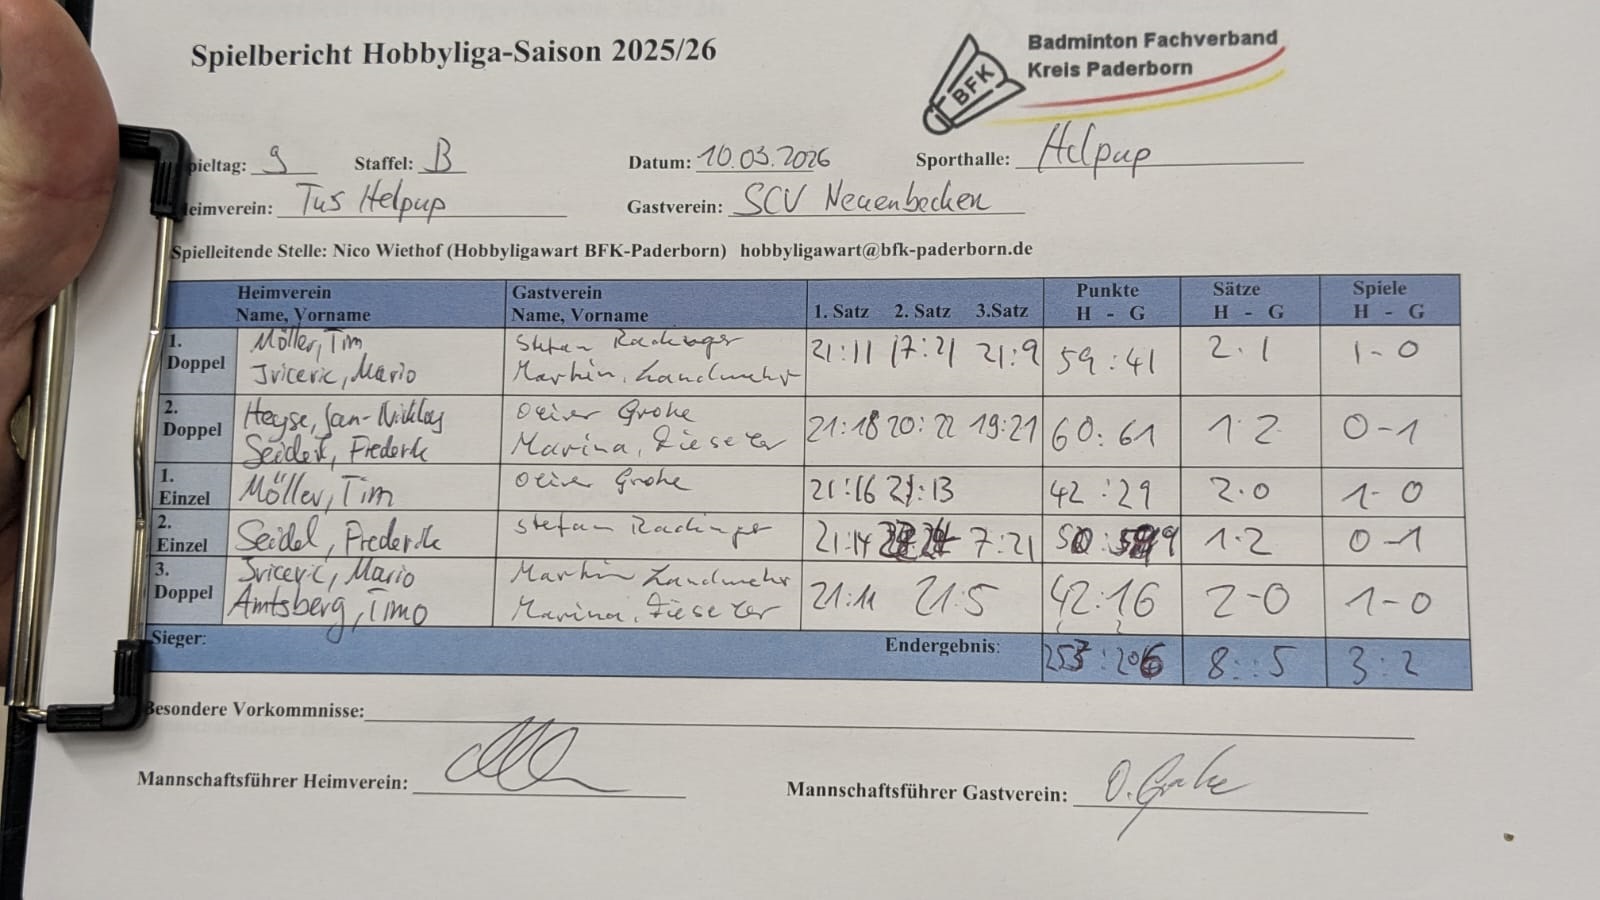 Spielbericht Hobbyliga-Saison 2025/26
BFK
Badminton Fachverband
Kreis Paderborn
pieltag: 9 Staffel: B Datum: 10.03.2026 Sporthalle: Helpup
eimverein: Tus Helpup Gastverein: SCV Neuenbecken
Spielleitende Stelle: Nico Wiethof (Hobbyligawart BFK-Paderborn) hobbyligawart@bfk-paderborn.de
Heimverein Gastverein Punkte Sätze Spiele
Name, Vorname Name, Vorname 1. Satz 2. Satz 3.Satz H - G H - G H - G
1. Doppel
Möller, Tim Stefan 21:11 17:21 21:9 59:41 2:1 1-0
Ivicevic, Mario Martin, Landwehr
2. Doppel
Heyse, Jan-Niklas Oliver Grohe 21:18 20:22 19:21 60:61 1:2 0-1
Seidel, Frederik Marina,
1. Einzel
Möller, Tim Oliver Grohe 21:16 21:13 42:29 2:0 1-0
2. Einzel
Seidel, Frederik Stefan 21:14 7:21 1:2 0-1
3. Doppel
Ivicevic, Mario Martin Landwehr 21:11 21:5 42:16 2-0 1-0
Amtsberg, Timo Marina,
Sieger: Endergebnis: 8:5 3:2
Besondere Vorkommnisse:
Mannschaftsführer Heimverein: Mannschaftsführer Gastverein: O. Grohe